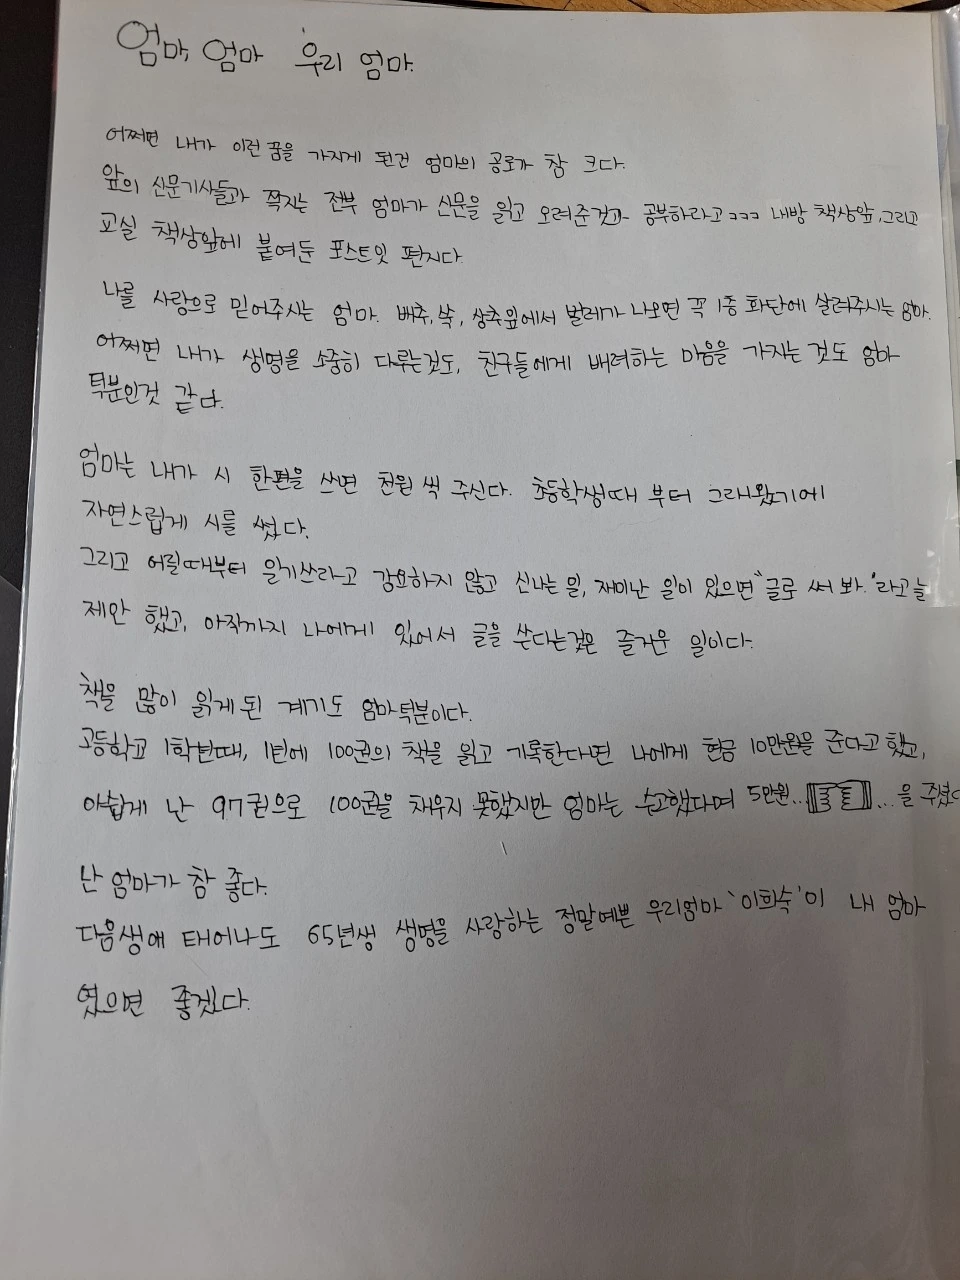 엄마, 엄마 우리 엄마.
어쩌면 내가 이런 꿈을 가지게 된건 엄마의 공로가 참 크다.
앞의 신문기사들과 쪽지는 전부 엄마가 신문을 읽고 오려준것과 공부하라고 ㅋㅋㅋ 내방 책상앞, 그리고
교실 책상앞에 붙여둔 포스트잇 편지다.
나를 사랑으로 믿어주시는 엄마. 배추, 쑥, 상추잎에서 벌레가 나오면 꼭 1층 화단에 살려주시는 엄마.
어쩌면 내가 생명을 소중히 다루는것도, 친구들에게 배려하는 마음을 가지는 것도 엄마
턱분인것 같다.
엄마는 내가 시 한편을 쓰면 천원 씩 주신다. 초등학생때 부터 그래왔기에
자연스럽게 시를 썼다.
그리고 어릴때부터 일기쓰라고 강요하지 않고 신나는 일, 재미난 일이 있으면 "글로 써 봐." 라고 늘
제안 했고, 아직까지 나에게 있어서 글을 쓴다는것은 즐거운 일이다.
책을 많이 읽게 된 계기도 엄마 턱분이다.
고등학교 1학년때, 1년에 100권의 책을 읽고 기록한다면 나에게 현금 10만원을 준다고 했고,
아쉽게 난 97권으로 100권을 채우지 못했지만 엄마는 수고했다며 5만원.. ...을 주셨다
난 엄마가 참 좋다.
다음생에 태어나도 65년생 생명을 사랑하는 정말예쁜 우리엄마 '이희숙'이 내 엄마
였으면 좋겠다.